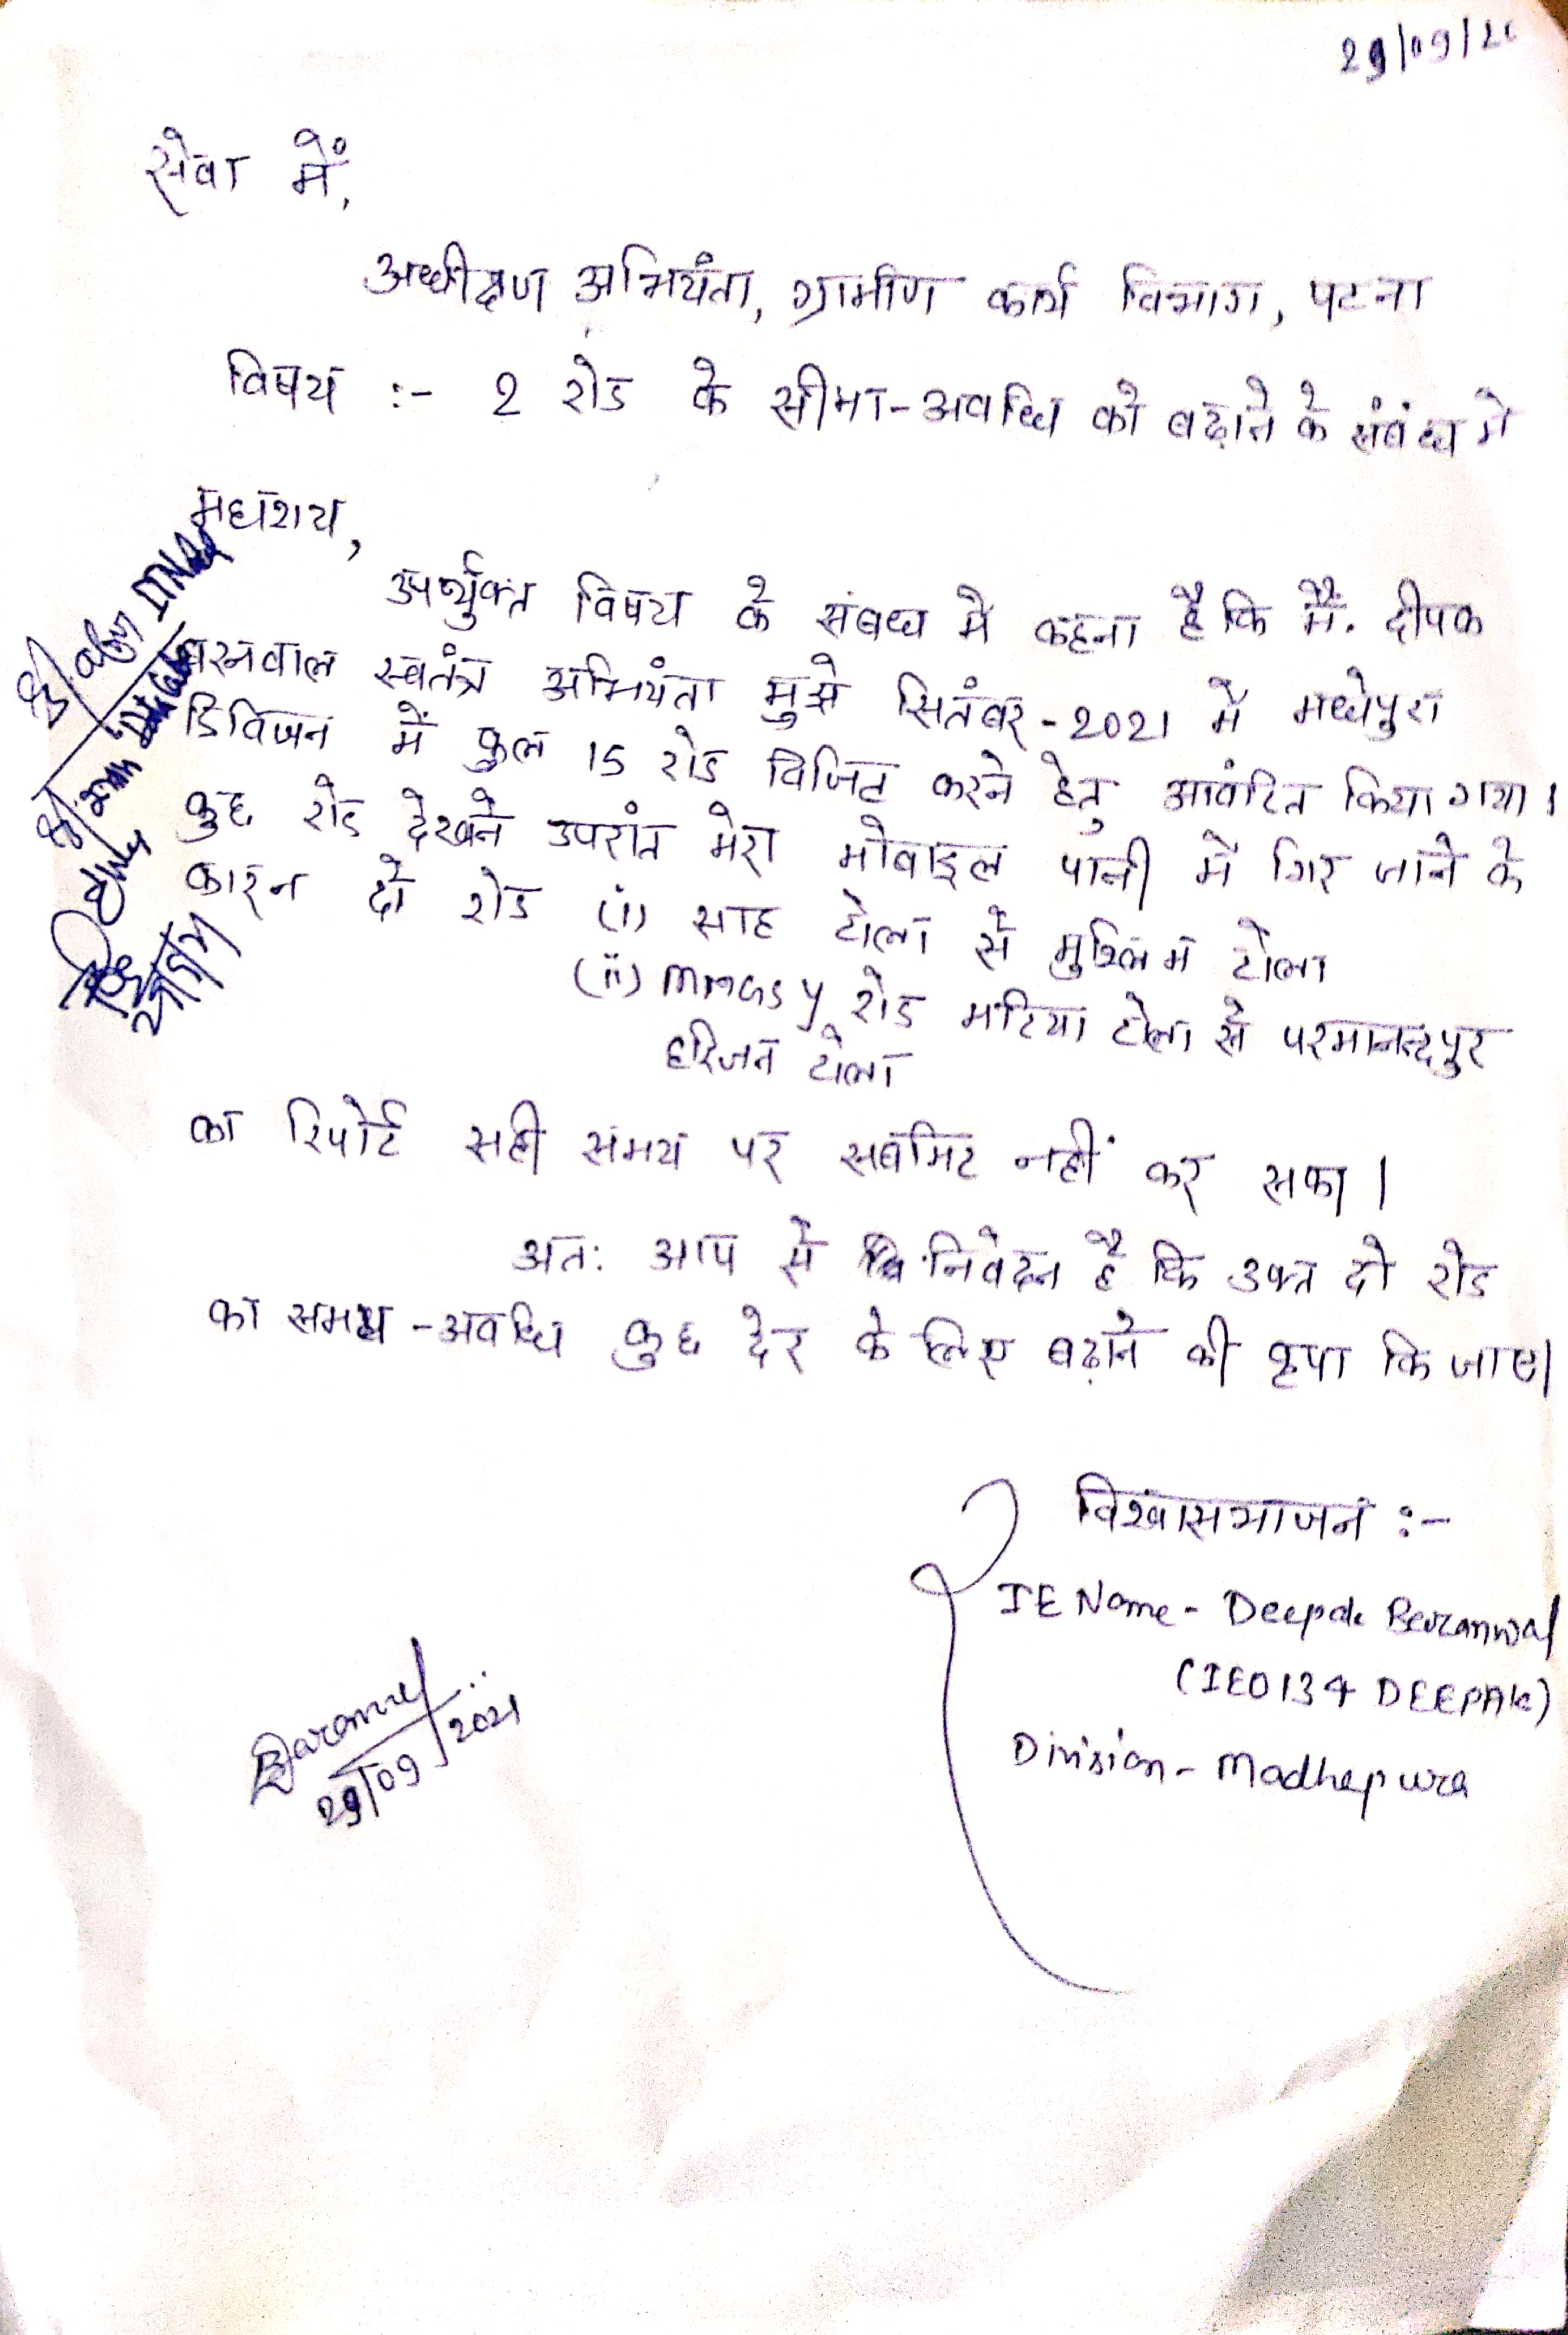 29/09/2
सेवा में,
अधीक्षण अभियंता, ग्रामीण कार्य विभाग, पटना
विषय :- 2 रोड के सीमा-अवधि को बढ़ाने के संबंध में
महाशय,
उपर्युक्त विषय के संबध में कहना है कि मैं. दीपक
बरनवाल स्वतंत्र अभियंता मुझे सितंबर-2021 में मधेपुरा
डिविजन में कुल 15 रोड विजिट करने हेतु आवंटित किया गया।
कुछ रोड देखने उपरांत मेरा मोबाइल पानी में गिर जाने के
कारन दो रोड (i) साह टोला से मुश्लिम टोला
(ii) mmgsy रोड मटिया टोला से परमानन्दपुर
हरिजन टोला
का रिपोर्ट सही समय पर सबमिट नहीं कर सका।
अतः आप से निवेदन है कि उक्त दो रोड
का समय-अवधि कुछ देर के लिए बढ़ाने की कृपा कि जाए।
विश्वासभाजन :-
IE Name - Deepak Baranwal
(IE0134 DEEPAK)
Division - Madhepura
29/09/2021